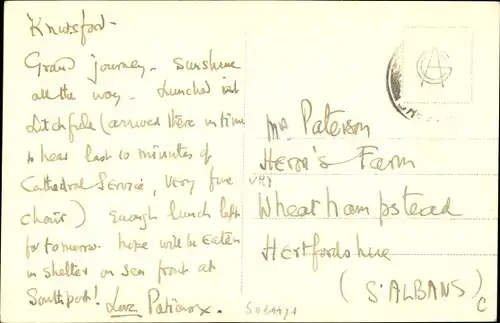 Knutsford -
Grand journey - sunshine
all the way - Lunched in
Litchfield (arrived there in time
to hear last 10 minutes of
Cathedral Service, very fine
choir) Enough lunch left
for tomorrow - hope will be eaten
in shelter on sea front at
Southport! Love Patience x.
Mrs Paterson
Heron's Farm
Wheathampstead
Hertfordshire
(S. ALBANS)